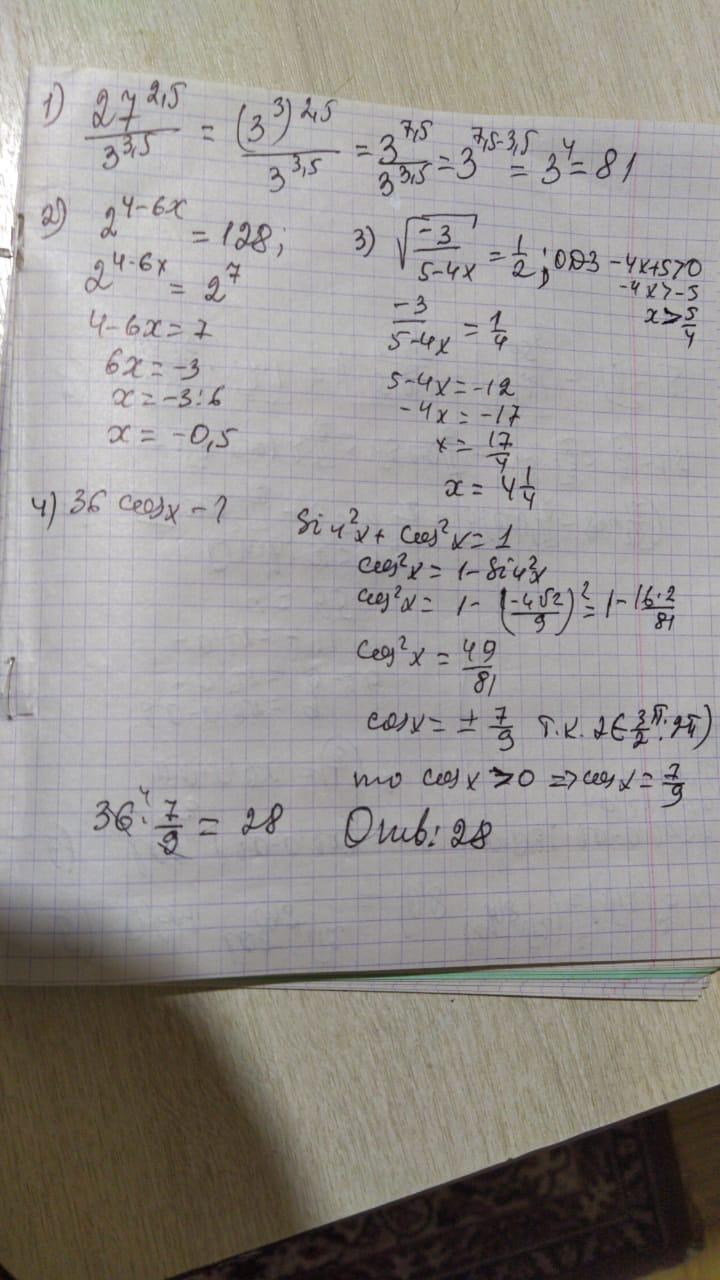 1) 27^2,5 / 3^3,5 = (3^3)^2,5 / 3^3,5 = 3^7,5 / 3^3,5 = 3^7,5-3,5 = 3^4 = 81
2) 2^4-6x = 128;
2^4-6x = 2^7
4-6x = 7
6x = -3
x = -3:6
x = -0,5
3) √(-3 / 5-4x) = 1/2; ОДЗ -4x+5>0
-4x>-5
x > 5/4
-3 / 5-4x = 1/4
5-4x = -12
-4x = -17
x = 17/4
x = 4 1/4
4) 36 cosx - ?
Sin²x + cos²x = 1
cos²x = 1-Sin²x
cos²x = 1- (-4√2 / 9)² = 1- 16·2 / 81
cos²x = 49/81
cosx = ± 7/9 т.к. 2∈ 3/2 π; 2π)
то cosx > 0 => cosx = 7/9
36 · 7/9 = 28 Отв: 28